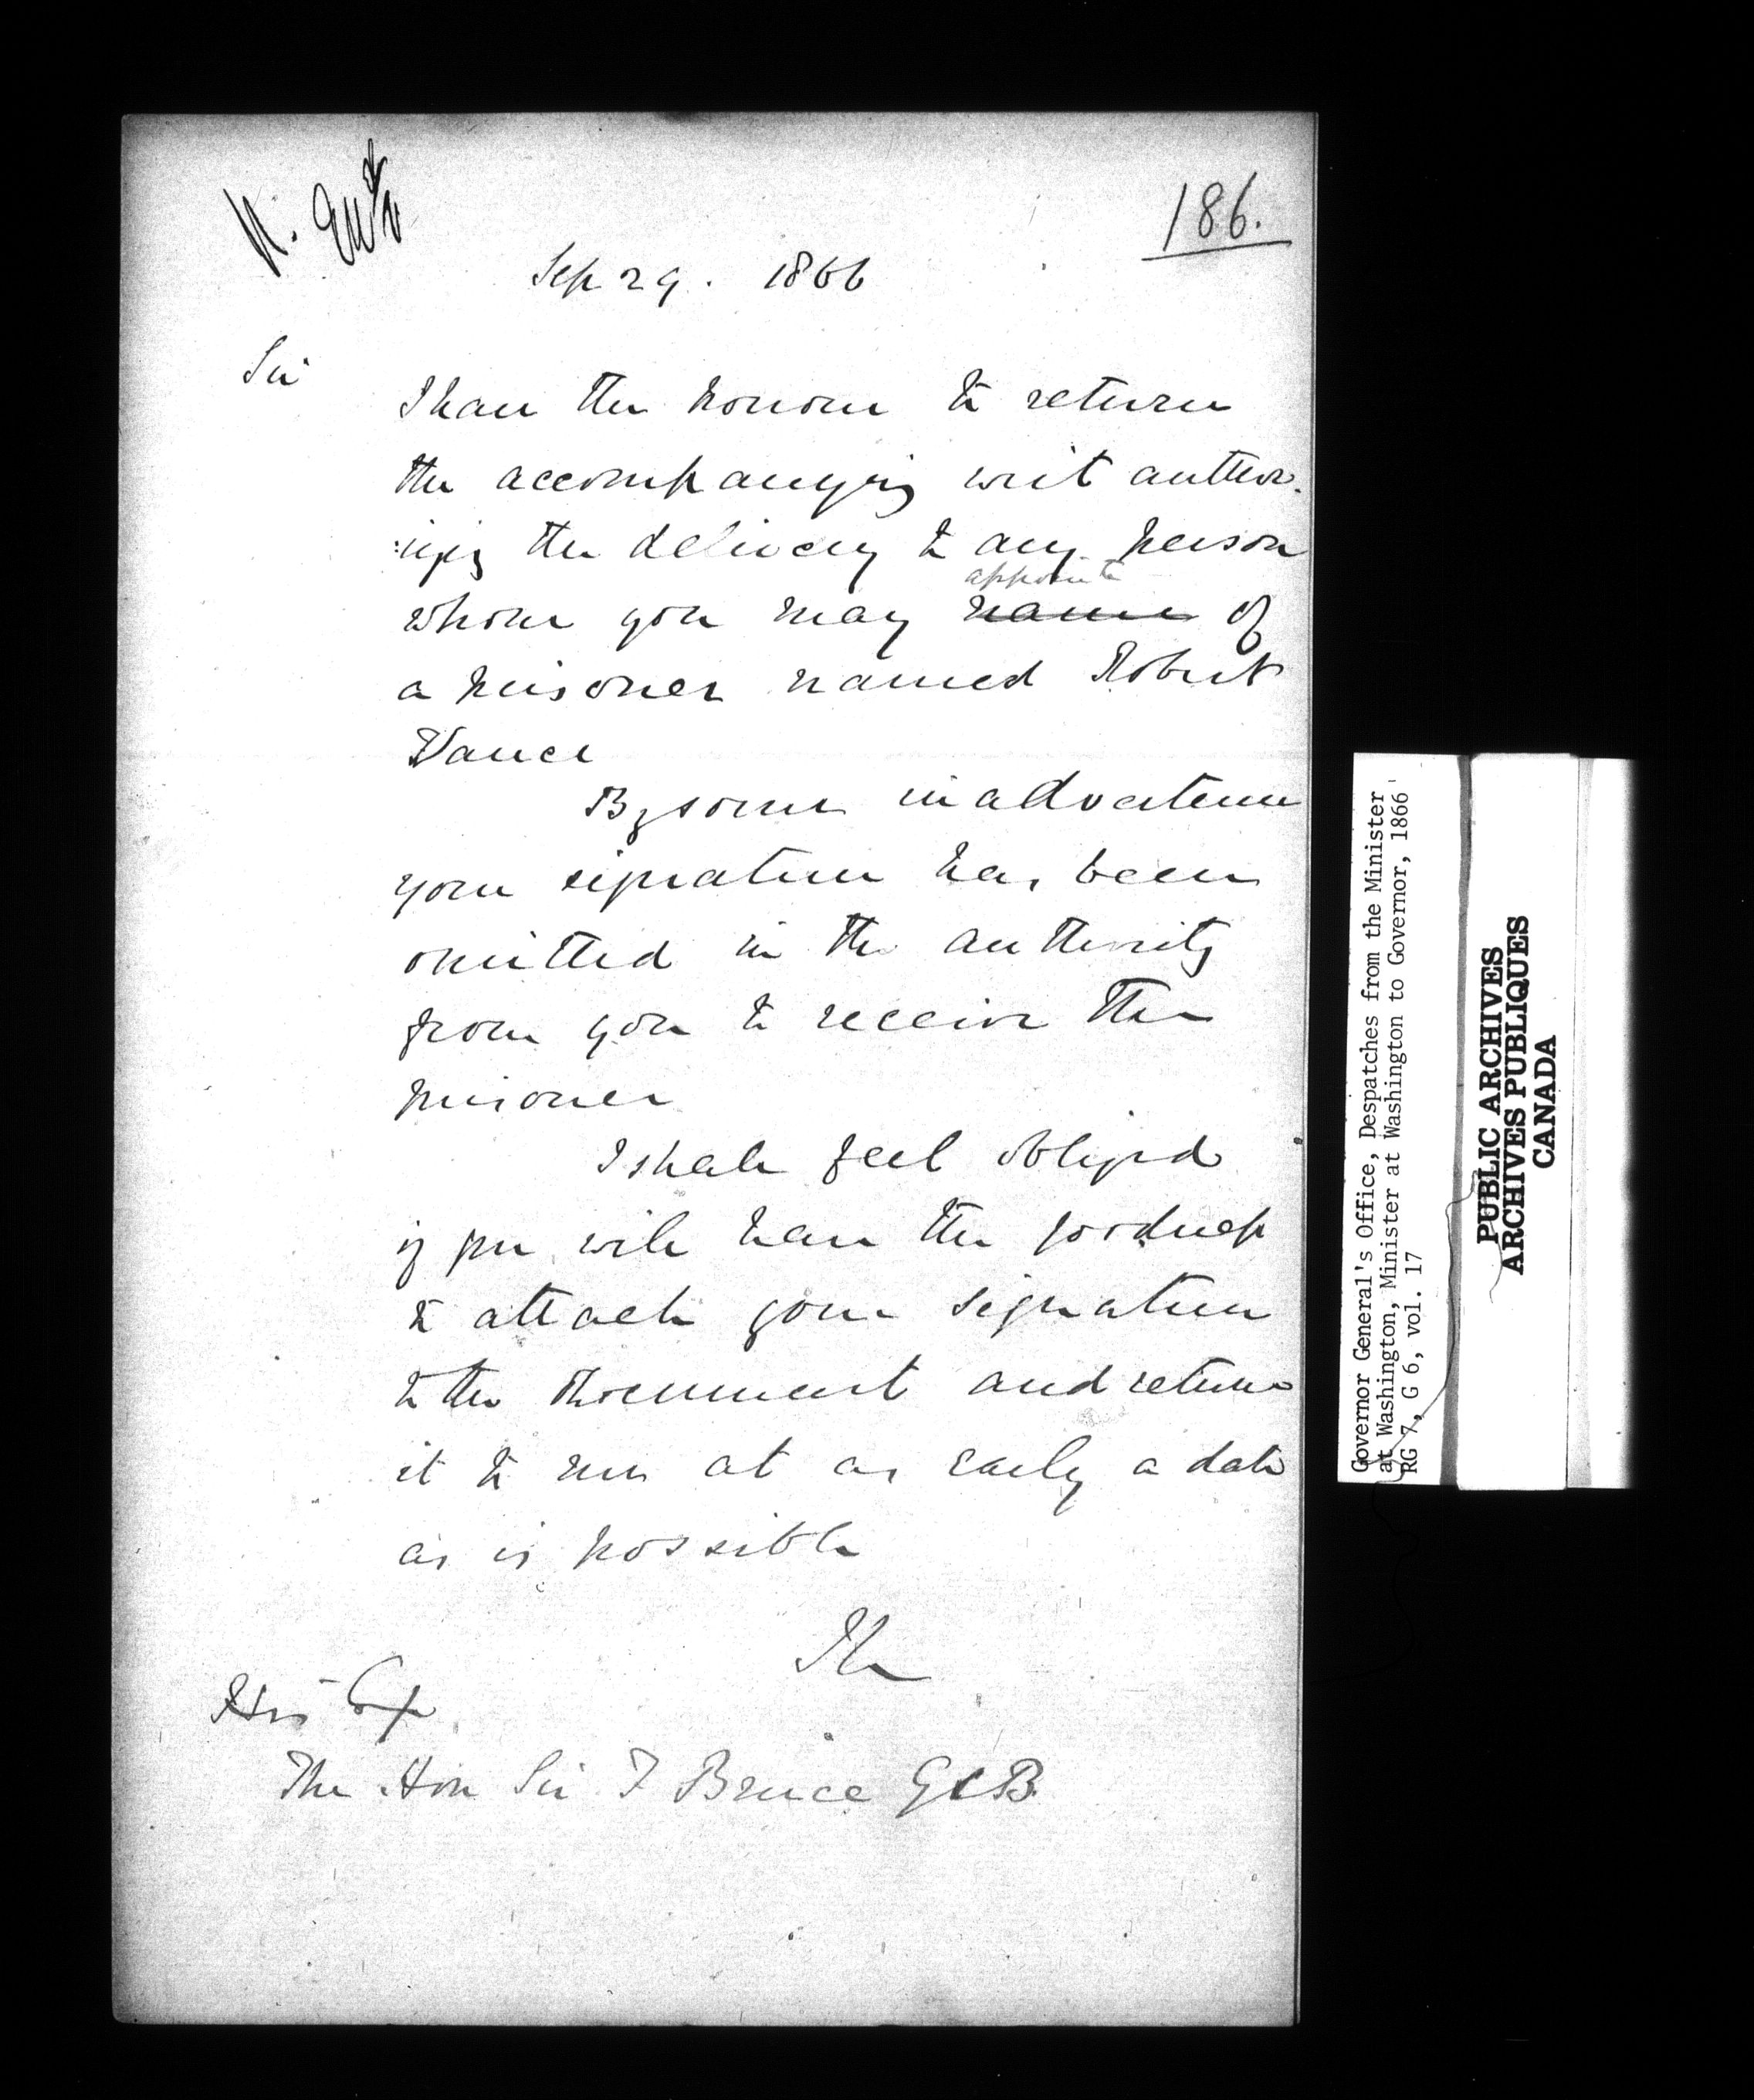 186.
Sep 29. 1866
Sir
I have the honour to return
the accompanying writ author-
:izing the delivery to any person
appoint
whom you may name of
a prisoner named Robert
Vance
By some inadvertence
your signature has been
omitted in the authority
from you to receive the
prisoner
I shall feel obliged
if you will have the goodness
to attach your signature
to the document and return
it to me at as early a date
as is possible
His Ex
The Hon Sir F Bruce GCB
Governor General's Office, Despatches from the Minister
at Washington, Minister at Washington to Governor, 1866
RG 7, G 6, vol. 17
PUBLIC ARCHIVES
ARCHIVES PUBLIQUES
CANADA